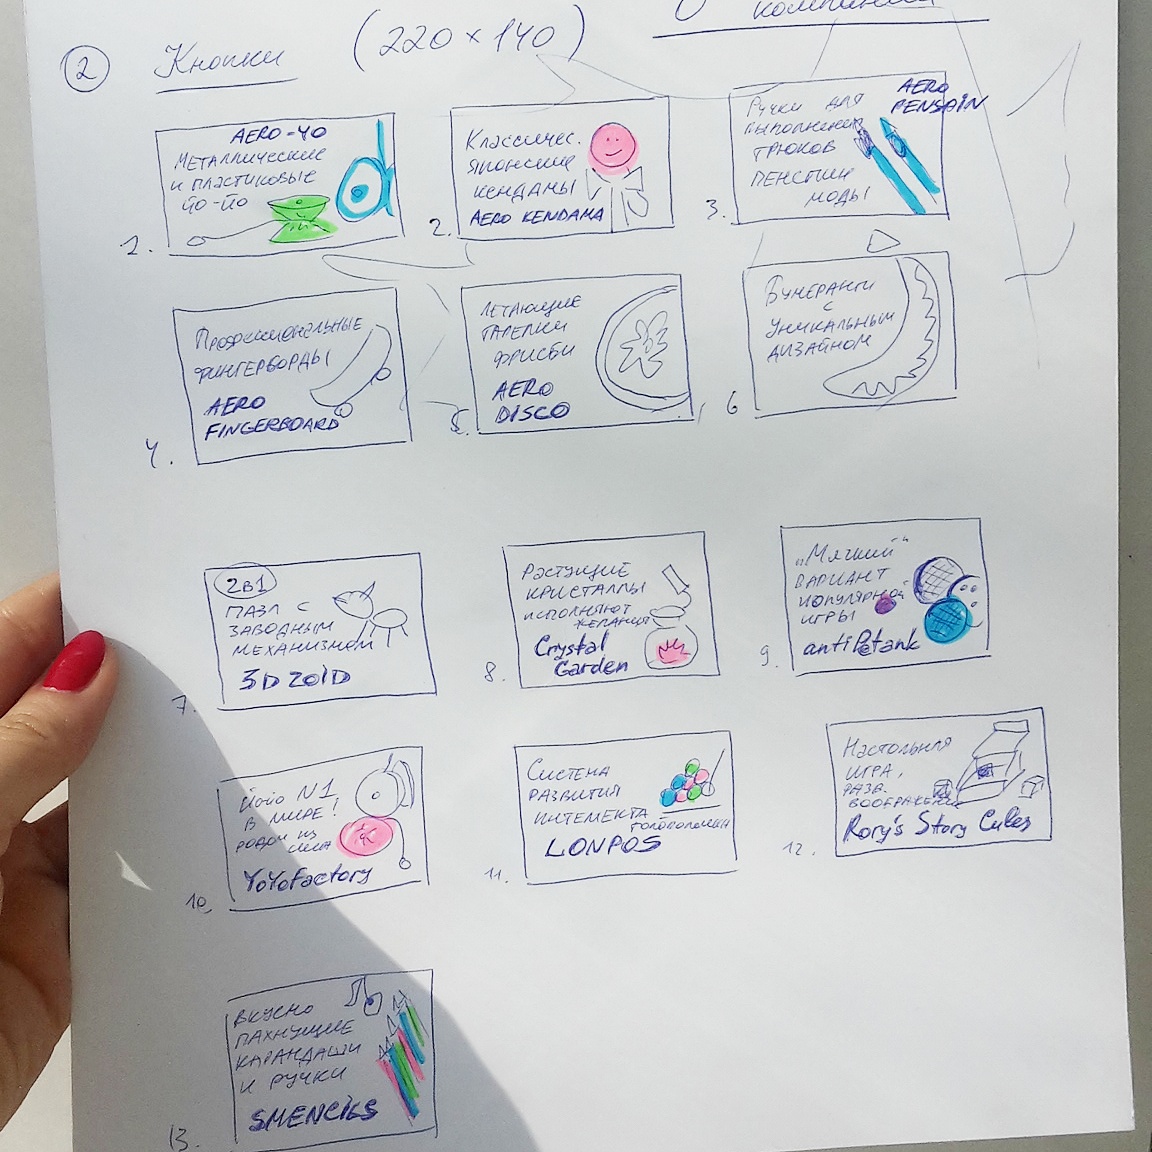 компании
2 Кнопки (220 × 140)
AERO-YO
Металлические
и пластиковые
йо-йо
1.
Классичес.
японские
кендамы
AERO KENDAMA
2.
Ручки для
выполнения
трюков
пенспин
моды
AERO
PENSPIN
3.
Профессиональные
фингерборды
AERO
FINGERBOARD
4.
Летающие
тарелки
фрисби
AERO
DISCO
5.
Бумеранги
с
уникальным
дизайном
6
2в1
пазл с
заводным
механизмом
3D ZOID
7.
Растущие
кристаллы
исполняют
желания
Crystal
Garden
8.
"Мягкий"
вариант
популярной
игры
antiPetank
9.
Йойо N1
в мире!
родом из
США
YoYoFactory
10.
Система
развития
интеллекта
головоломка
LONPOS
11.
Настольная
игра,
разв.
воображение
Rory's Story Cubes
12.
Вкусно
пахнущие
карандаши
и ручки
SMENCILS
13.